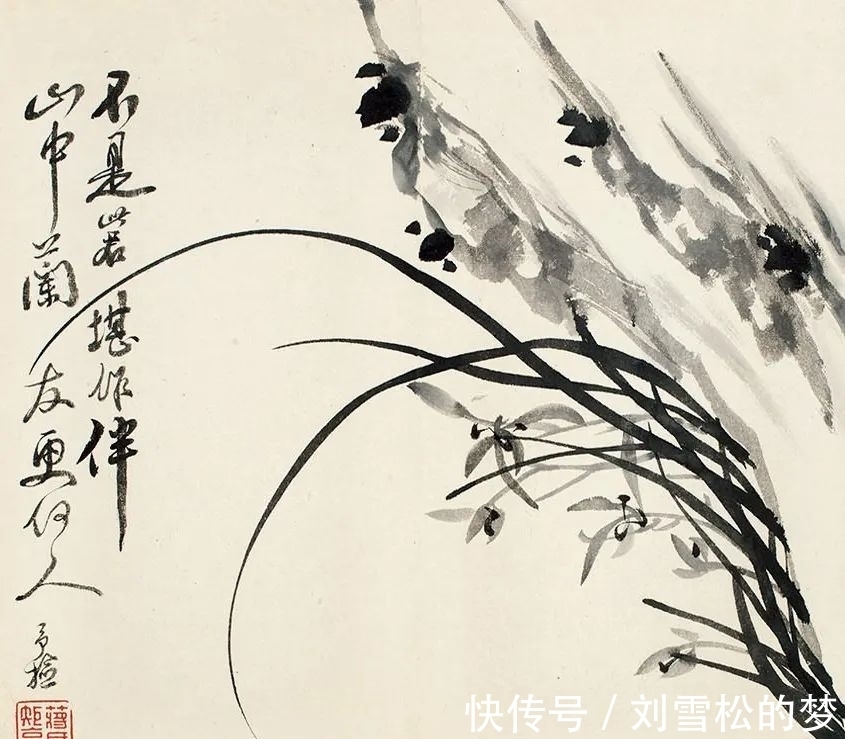 不是此石堪作伴
山中蘭友更何人
予檢
快传号 / 刘雪松的梦